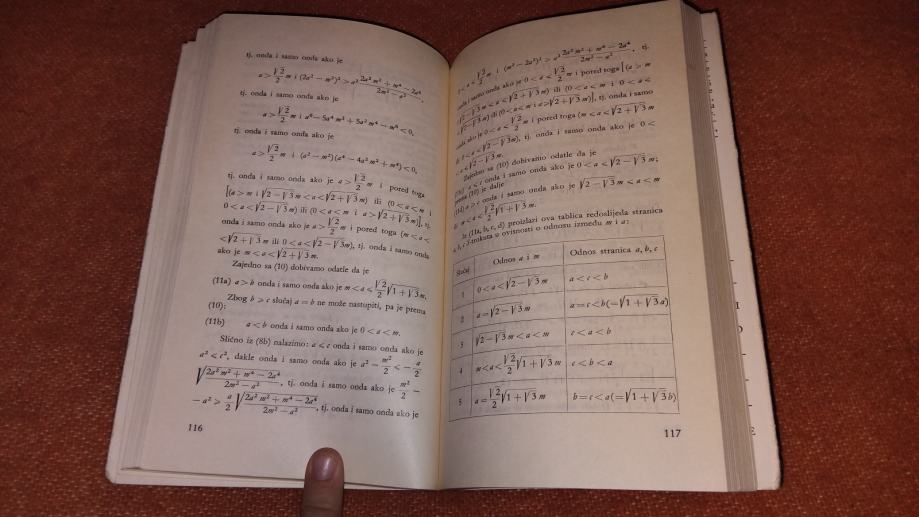 tj. onda i samo onda ako je
a > √2/2 m i (2a² − m²)² > a² (2a² m² + m⁴ − 2a⁴)/(2m² − a²),
tj. onda i samo onda ako je
a > √2/2 m i a⁶ − 5a⁴ m² + 5a² m⁴ − m⁶ < 0,
tj. onda i samo onda ako je
a > √2/2 m i (a² − m²)(a⁴ − 4a² m² + m⁴) < 0,
tj. onda i samo onda ako je a > √2/2 m i pored toga
[(a > m i √(2 − √3) m < a < √(2 + √3) m) ili (0 < a < m i
0 < a < √(2 − √3) m) ili (0 < a < m i a > √(2 + √3) m)], tj.
onda i samo onda ako je a > √2/2 m i pored toga (m < a <
< √(2 + √3) m ili 0 < a < √(2 − √3) m), tj. onda i samo onda
ako je m < a < √(2 + √3) m.
Zajedno sa (10) dobivamo odatle da je
(11a) a > b onda i samo onda ako je m < a < √2/2 √(1 + √3) m,
Zbog b ⩾ c slučaj a = b ne može nastupiti, pa je prema
(10):
(11b) a < b onda i samo onda ako je 0 < a < m.
Slično iz (8b) nalazimo: a ⩽ c onda i samo onda ako je
a² < c², dakle onda i samo onda ako je a² − m²/2 < − a/2
√((2a² m² + m⁴ − 2a⁴)/(2m² − a²)), tj. onda i samo onda ako je m²/2 −
− a² > a/2 √((2a² m² + m⁴ − 2a⁴)/(2m² − a²)), tj. onda i samo onda ako je
116
0 < a < √2/2 m i (m² − 2a²)² > a² (2a² m² + m⁴ − 2a⁴)/(2m² − a²), tj.
onda i samo onda ako je 0 < a < √2/2 m i pored toga [(a > m
i √(2 − √3) m < a < √(2 + √3) m) ili (0 < a < m i 0 < a <
< √(2 − √3) m) ili (0 < a < m i a > √(2 + √3) m)], tj. onda i samo
onda ako je 0 < a < √2/2 m i pored toga (m < a < √(2 + √3) m
ili 0 < a < √(2 − √3) m), tj. onda i samo onda ako je 0 <
< a < √(2 − √3) m.
Zajedno sa (10) dobivamo odatle da je
(11c) a < c onda i samo onda ako je 0 < a < √(2 − √3) m;
prema (10) je dalje
(11d) a > c onda i samo onda ako je √(2 − √3) m < a < m
ili m < a < √2/2 √(1 + √3) m.
Iz (11a, b, c, d) proizlazi ova tablica redoslijeda stranica
a, b, c 3-trokuta u ovisnosti o odnosu između m i a:
Slučaj Odnos a i m Odnos stranica a, b, c
1 0 < a < √(2 − √3) m a < c < b
2 a = √(2 − √3) m a = c < b (= √(1 + √3) a)
3 √(2 − √3) m < a < m c < a < b
4 m < a < √2/2 √(1 + √3) m c < b < a
5 a = √2/2 √(1 + √3) m b = c < a (= √(1 + √3) b)
117